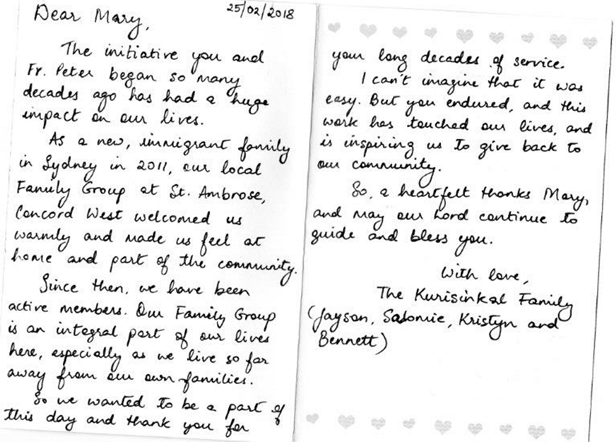 25/02/2018
Dear Mary,
The initiative you and
Fr. Peter began so many
decades ago has had a huge
impact on our lives.
As a new, immigrant family
in Sydney in 2011, our local
Family Group at St. Ambrose,
Concord West welcomed us
warmly and made us feel at
home and part of the community.
Since then, we have been
active members. Our Family Group
is an integral part of our lives
here, especially as we live so far
away from our own families.
So we wanted to be a part of
this day and thank you for
your long decades of service.
I can't imagine that it was
easy. But you endured, and this
work has touched our lives, and
is inspiring us to give back to
our community.
So, a heartfelt thanks Mary,
and may our Lord continue to
guide and bless you.
With love,
The Kurisinkal Family
(Jayson, Salomie, Kristyn and
Bennett)